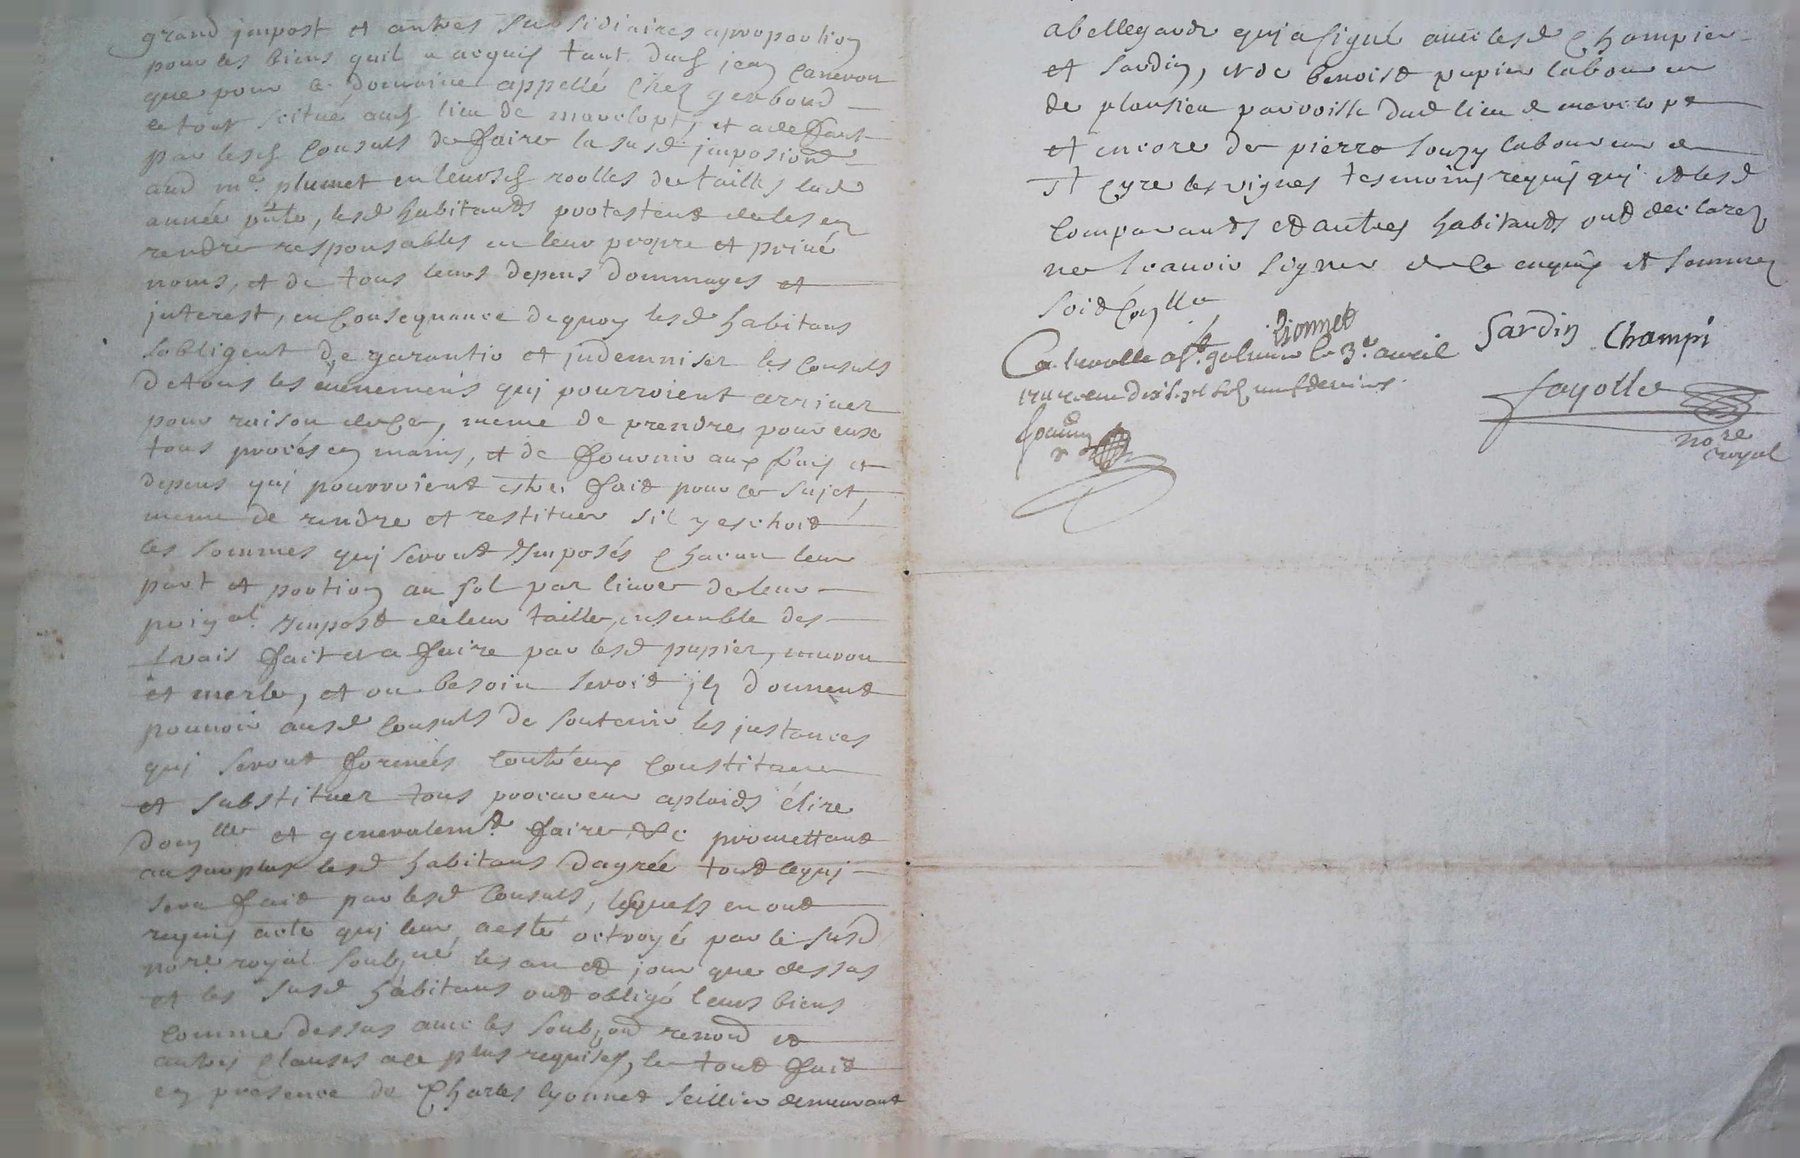 grand jmpost et autres subsidiaires aproportion
pour les biens quil a acquis tant dud jean
que pour le Domaine appellé Chez gerboud
le tout scitué aud lieu de marclopt, et adeffaut
par lesd Consuls de faire la susd jmposion
aud me plumet en leursd roolles de tailles lad
année pnte, lesd habitants protestent de les en
rendre responsables en leur propre et privé
noms, et de tous leurs depens dommages et
jnterest, en Consequance dequoy lesd habitans
sobligent de garantir et jndemniser les Consuls
de tous les evenemens quj pourroient arriver
pour raison de Ce, meme de prendre pour eux
tous procés en mains, et de fournir aux frais et
depens quj pourroient estre fait pour ce sujet,
meme de rendre et restituer sil y eschoit
les sommes quj seront Imposés Chacun leur
part et portion au sol par livre de leur
prigal Impost de leur taille, ensemble des
frais fait et a faire par lesd papier,
et merle, et ou besoin seroit jls donnent
pouvoir ausd Consuls de soutenir les jnstances
quj seront formées Contreux Constituer
et substituer tous procureur aplaids élire
domlle et generalemt faire &c promettant
au surplus lesd habitans dagréé tout ce quj
sera fait par lesd Consuls, lesquels en ont
requis acte quj leur aesté octroyé par le susd
nore royal soubné les an et jour que dessus
et les susd habitans ont obligé leurs biens
Comme dessus avec les soubon renond et
autres Clauses ace plus requises, le tout fait
en presence de Charles lyonnet seillier demeurant
abellegarde quj a signé avec lesd Champier
et sardin, et de benoist papier laboureur
de plansieu parroisse dud lieu de marclopt
et encore de pierre souzy laboureur de
st Cyre les vignes tesmoins requis quj et lesd
Comparants et autres habitants ont declarez
ne scavoir signer de Ce enquis et sommez
soit Conlle
Lionnet Sardin Champi
Controlle a st galmier le 3e avril
fayolle
nore royal